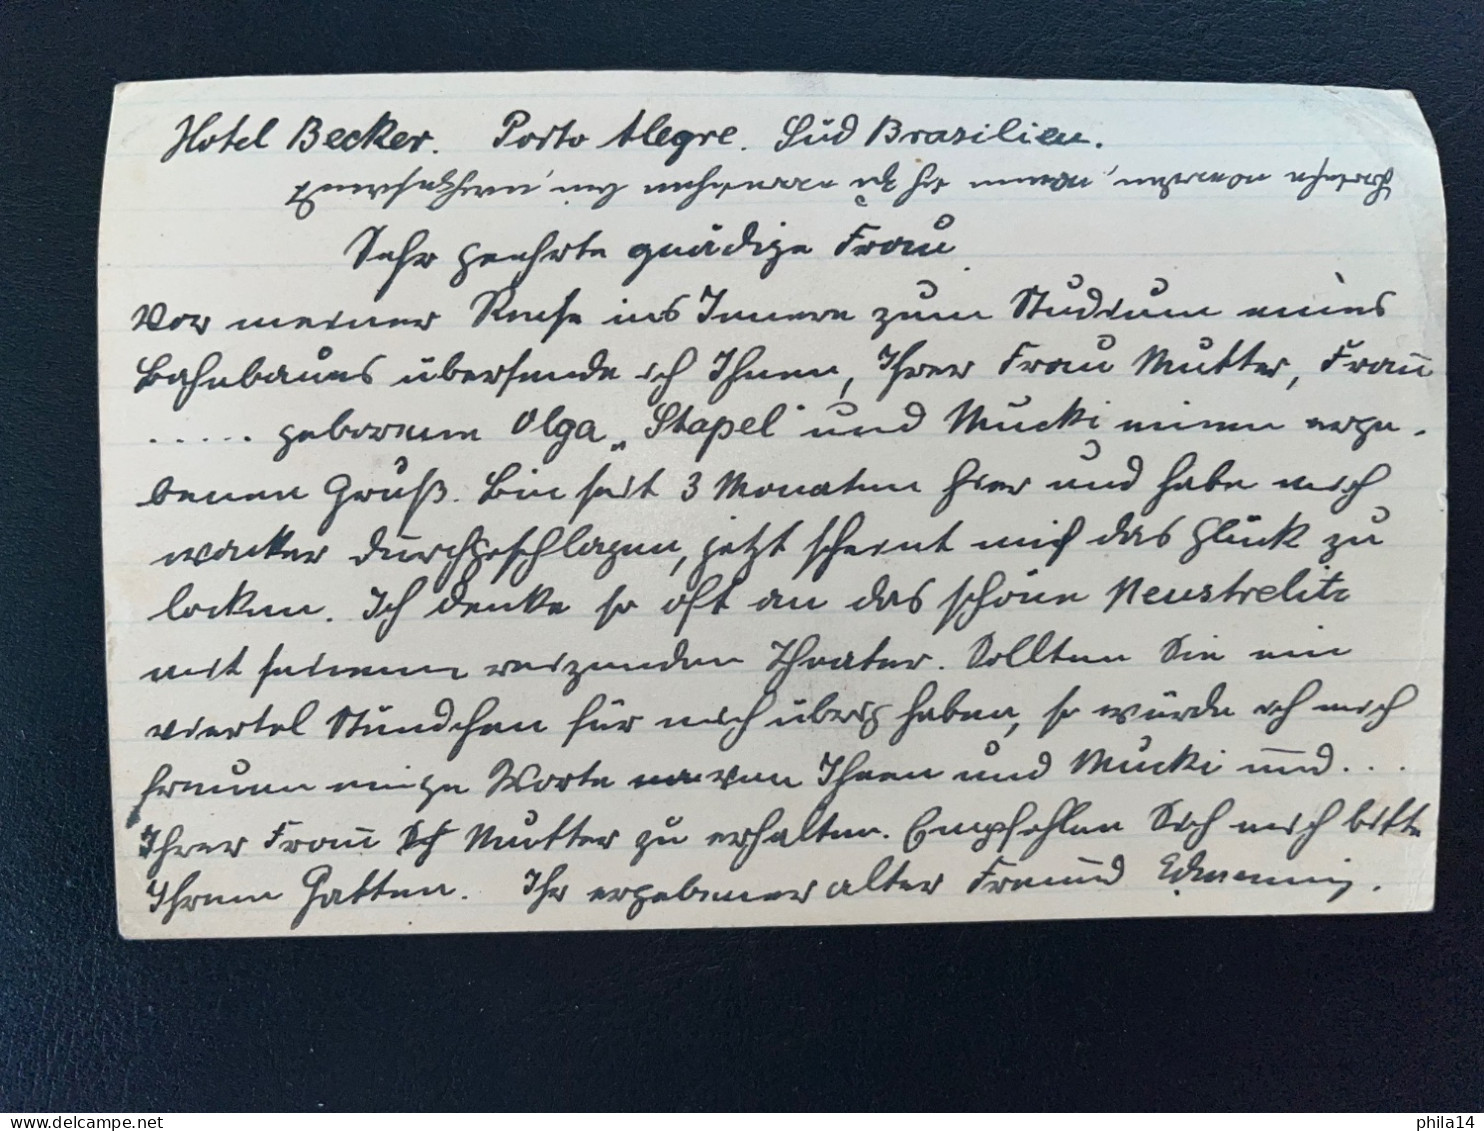 Hotel Becker. Porto Alegre. Süd Brasilien.
Sehr geehrte gnädige Frau
Vor meiner Reise ins Innere zum Studium eines
Bahnbaues übersende ich Ihnen, Ihrer Frau Mutter, Frau
..... geborene Olga „Stapel" und Mucki einen erge-
benen Gruß. Bin seit 3 Monaten hier und habe mich
wacker durchgeschlagen, jetzt scheint mich das Glück zu
locken. Ich denke so oft an das schöne Neustrelitz
mit seinem reizenden Theater. Sollten Sie ein
viertel Stündchen für mich übrig haben, so würde ich mich
freuen einige Worte von Ihnen und Mucki und ...
Ihrer Frau Mutter zu erhalten. Empfehlen Sie mich bitte
Ihrem Gatten. Ihr ergebener alter Freund
phila14